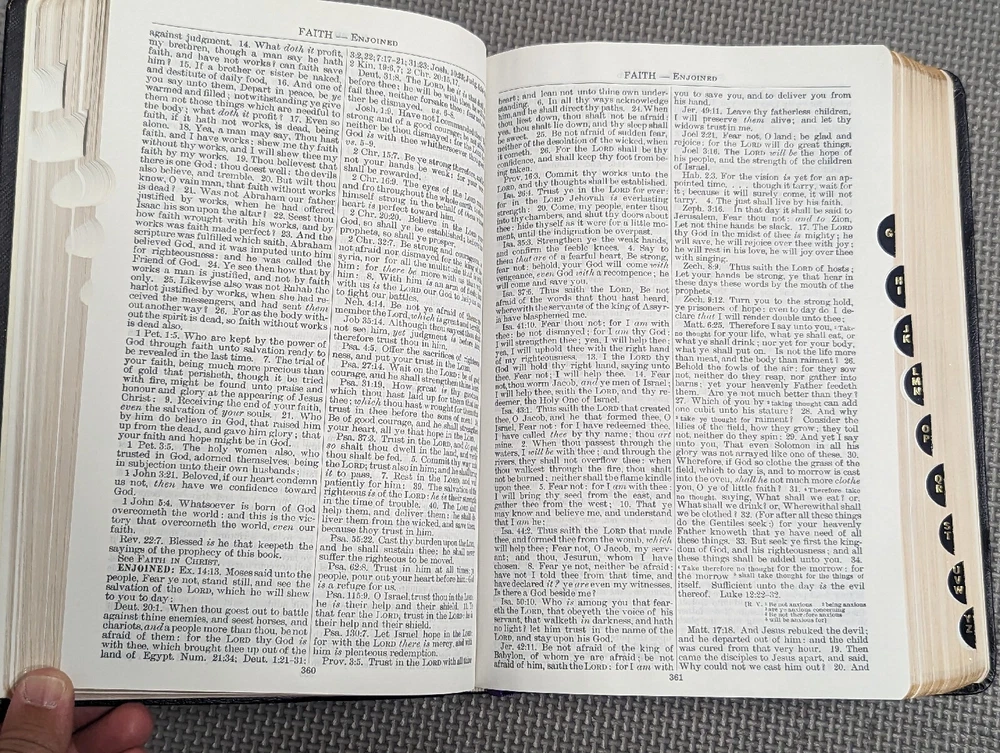 FAITH — ENJOINED
against judgment. 14. What doth it profit,
my brethren, though a man say he hath
faith, and have not works? can faith save
him? 15. If a brother or sister be naked,
and destitute of daily food, 16. And one of
you say unto them, Depart in peace, be ye
warmed and filled; notwithstanding ye give
them not those things which are needful to
the body; what doth it profit? 17. Even so
faith, if it hath not works, is dead, being
alone. 18. Yea, a man may say, Thou hast
faith, and I have works: shew me thy faith
without thy works, and I will shew thee my
faith by my works. 19. Thou believest that
there is one God; thou doest well: the devils
also believe, and tremble. 20. But wilt thou
know, O vain man, that faith without works
is dead? 21. Was not Abraham our father
justified by works, when he had offered
Isaac his son upon the altar? 22. Seest thou
how faith wrought with his works, and by
works was faith made perfect? 23. And the
scripture was fulfilled which saith, Abraham
believed God, and it was imputed unto him
for righteousness: and he was called the
Friend of God. 24. Ye see then how that by
works a man is justified, and not by faith
only. 25. Likewise also was not Rahab the
harlot justified by works, when she had re-
ceived the messengers, and had sent them
out another way? 26. For as the body with-
out the spirit is dead, so faith without works
is dead also.
1 Pet. 1:5. Who are kept by the power of
God through faith unto salvation ready to
be revealed in the last time. 7. The trial of
your faith, being much more precious than
of gold that perisheth, though it be tried
with fire, might be found unto praise and
honour and glory at the appearing of Jesus
Christ: 9. Receiving the end of your faith,
even the salvation of your souls. 21. Who
by him do believe in God, that raised him
up from the dead, and gave him glory; that
your faith and hope might be in God.
1 Pet. 3:5. The holy women also, who
trusted in God, adorned themselves, being
in subjection unto their own husbands;
1 John 3:21. Beloved, if our heart condemn
us not, then have we confidence toward
God.
1 John 5:4. Whatsoever is born of God
overcometh the world: and this is the vic-
tory that overcometh the world, even our
faith.
Rev. 22:7. Blessed is he that keepeth the
sayings of the prophecy of this book.
See FAITH IN CHRIST.
ENJOINED: Ex. 14:13. Moses said unto the
people, Fear ye not, stand still, and see the
salvation of the LORD, which he will shew
to you to day:
Deut. 20:1. When thou goest out to battle
against thine enemies, and seest horses, and
chariots, and a people more than thou, be not
afraid of them: for the LORD thy God is
with thee, which brought thee up out of the
land of Egypt. Num. 21:34; Deut. 1:21-31;
3:2,22; 7:17-21; 31:23; Josh. 10:25;
2 Kin. 19:6,7; 2 Chr. 20:15,17
Deut. 31:8. The LORD, he it is that
before thee; he will be with thee,
fail thee, neither forsake thee: fear
ther be dismayed. vs. 6-8.
Josh. 1:9. Have not I commanded
strong and of a good courage; be not
neither be thou dismayed: for the LORD
God is with thee whithersoever thou
vs. 5-9.
2 Chr. 15:7. Be ye strong therefore,
not your hands be weak: for your
shall be rewarded.
2 Chr. 16:9. The eyes of the LORD
and fro throughout the whole earth,
himself strong in the behalf of them
heart is perfect toward him.
2 Chr. 20:20. Believe in the LORD
God, so shall ye be established; believe
prophets, so shall ye prosper.
2 Chr. 32:7. Be strong and courageous,
not afraid nor dismayed for the king of
syria, nor for all the multitude that is
him: for there be more with us than
him: 8. With him is an arm of flesh;
with us is the LORD our God to help
to fight our battles.
Neh. 4:14. Be not ye afraid of them:
member the Lord, which is great and terrible.
Job 35:14. Although thou sayest thou
not see him, yet judgment is before him;
therefore trust thou in him.
Psa. 4:5. Offer the sacrifices of righteous-
ness, and put your trust in the LORD.
Psa. 27:14. Wait on the LORD: be of good
courage, and he shall strengthen thine
Psa. 31:19. How great is thy goodness,
which thou hast laid up for them that
thee; which thou hast wrought for them that
trust in thee before the sons of men! 24.
Be of good courage, and he shall strengthen
your heart, all ye that hope in the LORD.
Psa. 37:3. Trust in the LORD, and do good;
so shalt thou dwell in the land, and verily
thou shalt be fed. 5. Commit thy way unto
the LORD; trust also in him; and he shall bring
it to pass. 7. Rest in the LORD, and wait
patiently for him: 39. The salvation of the
righteous is of the LORD: he is their strength
in the time of trouble. 40. The LORD shall
help them, and deliver them: he shall de-
liver them from the wicked, and save them,
because they trust in him.
Psa. 55:22. Cast thy burden upon the LORD,
and he shall sustain thee: he shall never
suffer the righteous to be moved.
Psa. 62:8. Trust in him at all times; ye
people, pour out your heart before him: God
is a refuge for us.
Psa. 115:9. O Israel, trust thou in the LORD:
he is their help and their shield. 11. Ye
that fear the LORD, trust in the LORD: he is
their help and their shield.
Psa. 130:7. Let Israel hope in the LORD:
for with the LORD there is mercy, and with
him is plenteous redemption.
Prov. 3:5. Trust in the LORD with all thine
360
FAITH — ENJOINED
heart; and lean not unto thine own under-
standing. 6. In all thy ways acknowledge
him, and he shall direct thy paths. 24. When
thou liest down, thou shalt not be afraid:
yea, thou shalt lie down, and thy sleep shall
be sweet. 25. Be not afraid of sudden fear,
neither of the desolation of the wicked, when
it cometh. 26. For the LORD shall be thy
confidence, and shall keep thy foot from be-
ing taken.
Prov. 16:3. Commit thy works unto the
LORD, and thy thoughts shall be established.
Isa. 26:4. Trust ye in the LORD for ever:
for in the LORD Jehovah is everlasting
strength: 20. Come, my people, enter thou
into thy chambers, and shut thy doors about
thee: hide thyself as it were for a little mo-
ment, until the indignation be overpast.
Isa. 35:3. Strengthen ye the weak hands,
and confirm the feeble knees. 4. Say to
them that are of a fearful heart, Be strong,
fear not: behold, your God will come with
vengeance, even God with a recompence; he
will come and save you.
Isa. 37:6. Thus saith the LORD, Be not
afraid of the words that thou hast heard,
wherewith the servants of the king of Assyr-
ia have blasphemed me.
Isa. 41:10. Fear thou not; for I am with
thee: be not dismayed; for I am thy God:
I will strengthen thee; yea, I will help thee;
yea, I will uphold thee with the right hand
of my righteousness. 13. I the LORD thy
God will hold thy right hand, saying unto
thee, Fear not; I will help thee. 14. Fear
not, thou worm Jacob, and ye men of Israel;
I will help thee, saith the LORD, and thy re-
deemer, the Holy One of Israel.
Isa. 43:1. Thus saith the LORD that created
thee, O Jacob, and he that formed thee, O
Israel, Fear not: for I have redeemed thee,
I have called thee by thy name; thou art
mine. 2. When thou passest through the
waters, I will be with thee; and through the
rivers, they shall not overflow thee: when
thou walkest through the fire, thou shalt
not be burned; neither shall the flame kindle
upon thee. 5. Fear not: for I am with thee:
I will bring thy seed from the east, and
gather thee from the west; 10. That ye
may know and believe me, and understand
that I am he:
Isa. 44:2. Thus saith the LORD that made
thee, and formed thee from the womb, which
will help thee; Fear not, O Jacob, my serv-
ant; and thou, Jesurun, whom I have
chosen. 8. Fear ye not, neither be afraid:
have not I told thee from that time, and
have declared it? ye are even my witnesses.
Is there a God beside me?
Isa. 50:10. Who is among you that fear-
eth the LORD, that obeyeth the voice of his
servant, that walketh in darkness, and hath
no light? let him trust in the name of the
LORD, and stay upon his God.
Jer. 42:11. Be not afraid of the king of
Babylon, of whom ye are afraid; be not
afraid of him, saith the LORD: for I am with
you to save you, and to deliver you from
his hand.
Jer. 49:11. Leave thy fatherless children,
I will preserve them alive; and let thy
widows trust in me.
Joel 2:21. Fear not, O land; be glad and
rejoice: for the LORD will do great things.
Joel 3:16. The LORD will be the hope of
his people, and the strength of the children
of Israel.
Hab. 2:3. For the vision is yet for an ap-
pointed time, . . . though it tarry, wait for
it; because it will surely come, it will not
tarry. 4. The just shall live by his faith.
Zeph. 3:16. In that day it shall be said to
Jerusalem, Fear thou not: and to Zion,
Let not thine hands be slack. 17. The LORD
thy God in the midst of thee is mighty; he
will save, he will rejoice over thee with joy;
he will rest in his love, he will joy over thee
with singing.
Zech. 8:9. Thus saith the LORD of hosts;
Let your hands be strong, ye that hear in
these days these words by the mouth of the
prophets.
Zech. 9:12. Turn you to the strong hold,
ye prisoners of hope: even to day do I de-
clare that I will render double unto thee:
Matt. 6:25. Therefore I say unto you, ¹Take
no thought for your life, what ye shall eat, or
what ye shall drink; nor yet for your body,
what ye shall put on. Is not the life more
than meat, and the body than raiment? 26.
Behold the fowls of the air: for they sow
not, neither do they reap, nor gather into
barns; yet your heavenly Father feedeth
them. Are ye not much better than they?
27. Which of you by ²taking thought can add
one cubit unto his stature? 28. And why
³take ye thought for raiment? Consider the
lilies of the field, how they grow; they toil
not, neither do they spin: 29. And yet I say
unto you, That even Solomon in all his
glory was not arrayed like one of these. 30.
Wherefore, if God so clothe the grass of the
field, which to day is, and to morrow is cast
into the oven, shall he not much more clothe
you, O ye of little faith? 31. ⁴Therefore take
no thought, saying, What shall we eat? or,
What shall we drink? or, Wherewithal shall
we be clothed? 32. (For after all these things
do the Gentiles seek:) for your heavenly
Father knoweth that ye have need of all
these things. 33. But seek ye first the king-
dom of God, and his righteousness; and all
these things shall be added unto you. 34.
⁴Take therefore no thought for the morrow: for
the morrow ⁵shall take thought for the things of
itself. Sufficient unto the day is the evil
thereof. Luke 12:22-32.
[R. V. ¹ Be not anxious ² being anxious
³ are ye anxious concerning
⁴ Be not therefore anxious
⁵ will be anxious for]
Matt. 17:18. And Jesus rebuked the devil;
and he departed out of him: and the child
was cured from that very hour. 19. Then
came the disciples to Jesus apart, and said,
Why could not we cast him out? 20. And
361
G
HI
JK
LMN
OP
QR
ST
UVW
YZ